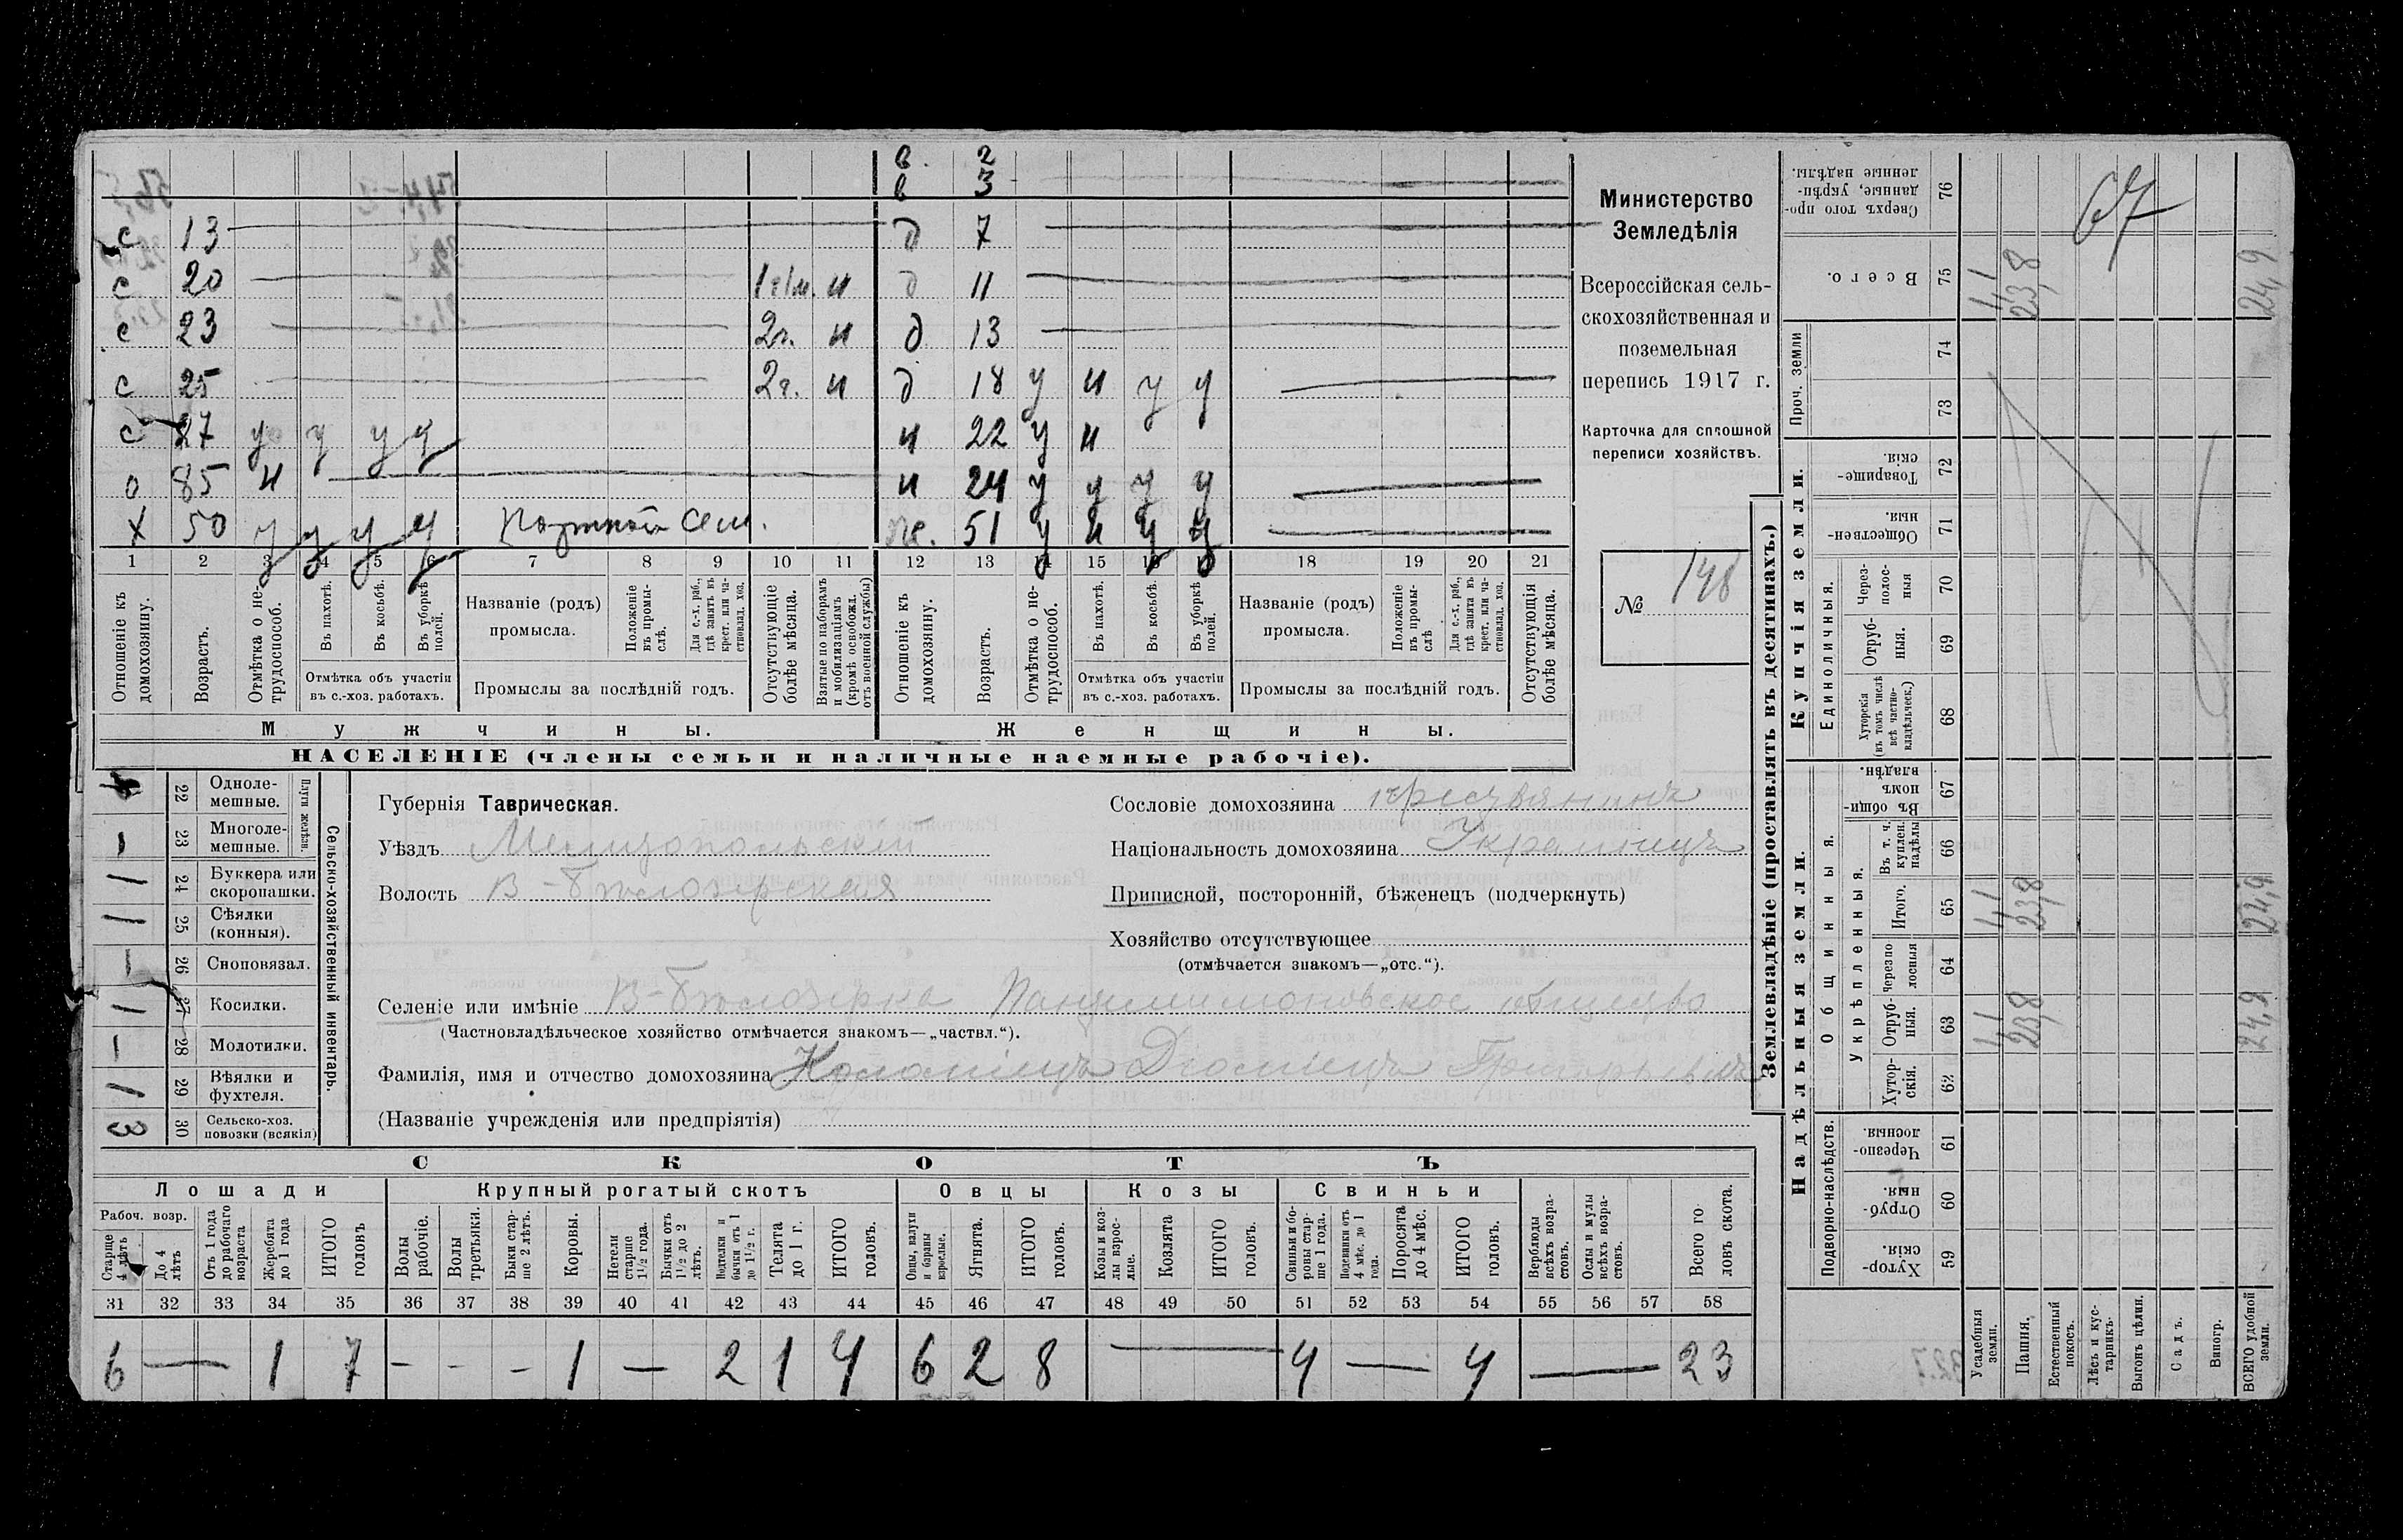 в. 2
в 3
с 13 д 7
с 20 1г1м. н д 11
с 23 2г. н д 13
с 25 2г. н д 18 у н у у
с 27 у у у у н 22 у н
о 85 н н 24 у у у у
х 50 у у у у ж. 51 у н у у
1 2 3 4 5 6 7 8 9 10 11 12 13 14 15 16 17 18 19 20 21
Отношеніе къ домохозяину.
Возрастъ.
Отмѣтка о не-трудоспособ.
Въ пахотѣ.
Въ косьбѣ.
Въ уборкѣ полей.
Отмѣтка объ участіи въ с.-хоз. работахъ.
Названіе (родъ) промысла.
Положеніе въ промы-слѣ.
Для с.-х. раб., гдѣ занятъ въ крест. или ча-стновлад. хоз.
Промыслы за послѣдній годъ.
Отсутствующіе болѣе мѣсяца.
Взятые по наборамъ и мобилизаціямъ (кромѣ освобожд. отъ военной службы)
Отношеніе къ домохозяину.
Возрастъ.
Отмѣтка о не-трудоспособ.
Въ пахотѣ.
Въ косьбѣ.
Въ уборкѣ полей.
Отмѣтка объ участіи въ с.-хоз. работахъ.
Названіе (родъ) промысла.
Положеніе въ промы-слѣ
Для с.-х. раб., гдѣ занята въ крест. или ча-стновлад. хоз.
Промыслы за послѣдній годъ.
Отсутствующія болѣе мѣсяца.
Мужчины. Женщины.
НАСЕЛЕНІЕ (члены семьи и наличные наемные рабочіе).
Министерство
Земледѣлія
Всероссійская сель-
скохозяйственная и
поземельная
перепись 1917 г.
Карточка для сплошной
переписи хозяйствъ.
№ 148
22 Однолемешные.
Плуги желѣзн.
— 23 Многолемешные.
1 24 Буккера или скоропашки.
1 25 Сѣялки (конныя).
— 26 Сноповязал.
1 27 Косилки.
— 28 Молотилки.
1 29 Вѣялки и фухтеля.
3 30 Сельско-хоз. повозки (всякія)
Сельско-хозяйственный инвентарь.
Губернія Таврическая.
Уѣздъ Мелитопольскій
Волость В-Бѣлозерская
Сословіе домохозяина крестьянинъ
Національность домохозяина Украинецъ
Приписной, посторонній, бѣженецъ (подчеркнуть)
Хозяйство отсутствующее
(отмѣчается знакомъ—„отс.“).
Селеніе или имѣніе В-Бѣлозерка Пантелимоновское общество
(Частновладѣльческое хозяйство отмѣчается знакомъ—„частвл.“).
Фамилія, имя и отчество домохозяина Григорьевичъ
(Названіе учрежденія или предпріятія)
СКОТЪ
Лошади Крупный рогатый скотъ Овцы Козы Свиньи
Рабоч. возр.
Старше 4 лѣтъ
До 4 лѣтъ
Отъ 1 года до рабочаго возраста
Жеребята до 1 года
ИТОГО головъ
Волы рабочіе.
Волы третьяки.
Быки стар-ше 2 лѣтъ.
Коровы.
Нетели старше 1½ года.
Бычки отъ 1½ до 2 лѣтъ.
Подтелки и бычки отъ 1 до 1½ г.
Телята до 1 г.
ИТОГО головъ.
Овцы, валухи и бараны взрослые.
Ягнята.
ИТОГО головъ.
Козы и коз-лы взрос-лые.
Козлята
ИТОГО головъ.
Свиньи и бо-ровы стар-ше 1 года.
Подсвинки отъ 4 мѣс. до 1 года.
Поросята до 4 мѣс.
ИТОГО головъ.
Верблюды всѣхъ возра-стовъ.
Ослы и мулы всѣхъ возра-стовъ.
Всего го-ловъ скота.
31 32 33 34 35 36 37 38 39 40 41 42 43 44 45 46 47 48 49 50 51 52 53 54 55 56 57 58
6 — 1 7 - - - 1 — 2 1 4 6 2 8 — 4 — 4 — 23
Землевладѣніе (проставлять въ десятинахъ.)
Купчія земли.
Надѣльныя земли.
Сверхъ того про-данные, укрѣп-ленные надѣлы. 76
67
Всего. 75 1,1 23,8 24,9
Проч. земли 74 73
Товарище-скія. 72
Обществен-ныя. 71
Единоличныя.
Через-полос-ныя 70
Отруб-ныя. 69
Хуторскія (въ томъ числѣ всѣ частно-владѣльческ.) 68
Общинныя.
Въ общин-номъ владѣн. 67
Укрѣпленныя.
Въ т. ч. куплен. надѣлы 66
Итого. 65 1,1 23,8 24,9
Черезпо-лосныя 64
Отруб-ныя. 63 1,1 23,8 24,9
Хутор-скія. 62
Подворно-наслѣдств.
Черезпо-лосныя. 61
Отруб-ныя. 60
Хутор-скія. 59
Усадебныя земли.
Пашня.
Естественный покосъ.
Лѣсъ и кус-тарникъ.
Выгонъ цѣлин.
Садъ.
Виногр.
ВСЕГО удобной земли.